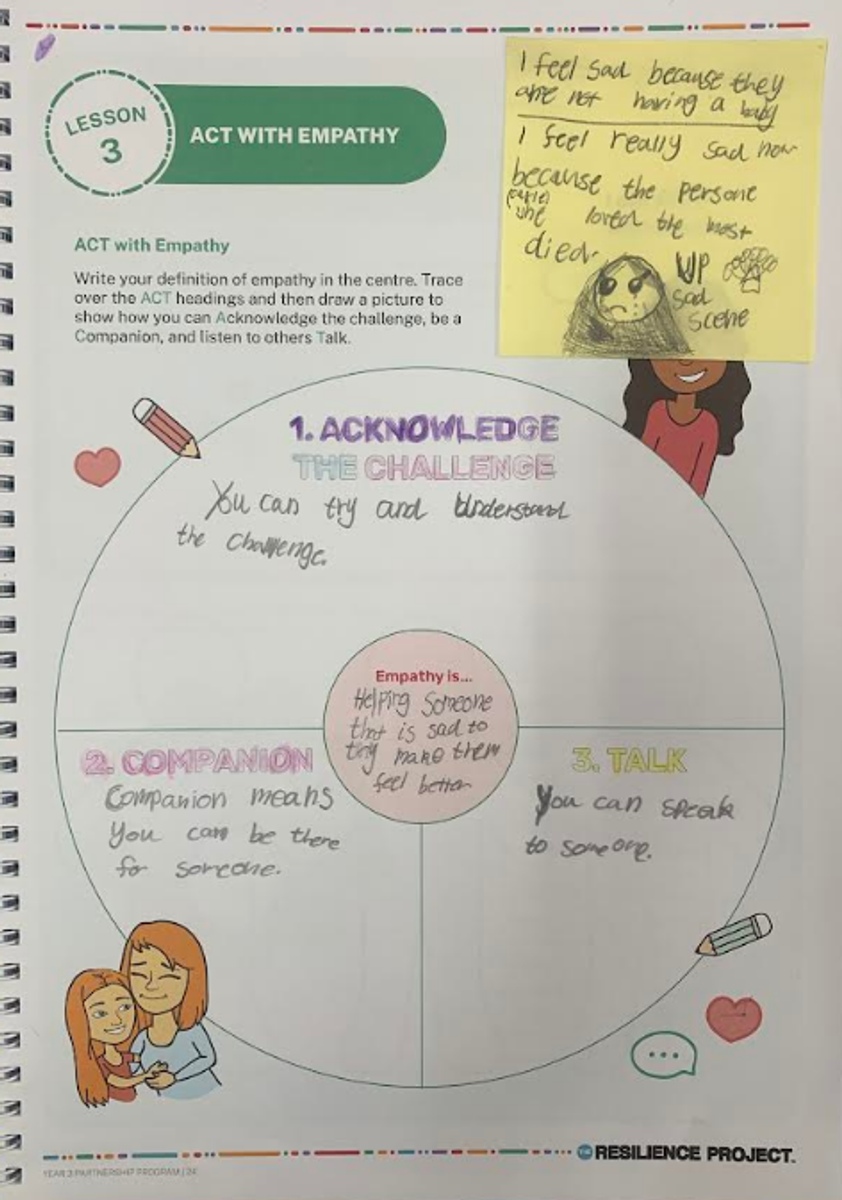 LESSON
3
ACT WITH EMPATHY
I feel sad because they
are not having a baby
I feel really sad now
because the persone
(carle)
she loved the most
died.
UP
sad
scene
ACT with Empathy
Write your definition of empathy in the centre. Trace
over the ACT headings and then draw a picture to
show how you can Acknowledge the challenge, be a
Companion, and listen to others Talk.
1. ACKNOWLEDGE
THE CHALLENGE
You can try and understand
the challenge.
Empathy is...
Helping someone
that is sad to
try make them
feel better
2. COMPANION
Companion means
you can be there
for someone.
3. TALK
You can speak
to someone.
THE RESILIENCE PROJECT.
YEAR 3 PARTNERSHIP PROGRAM | 24